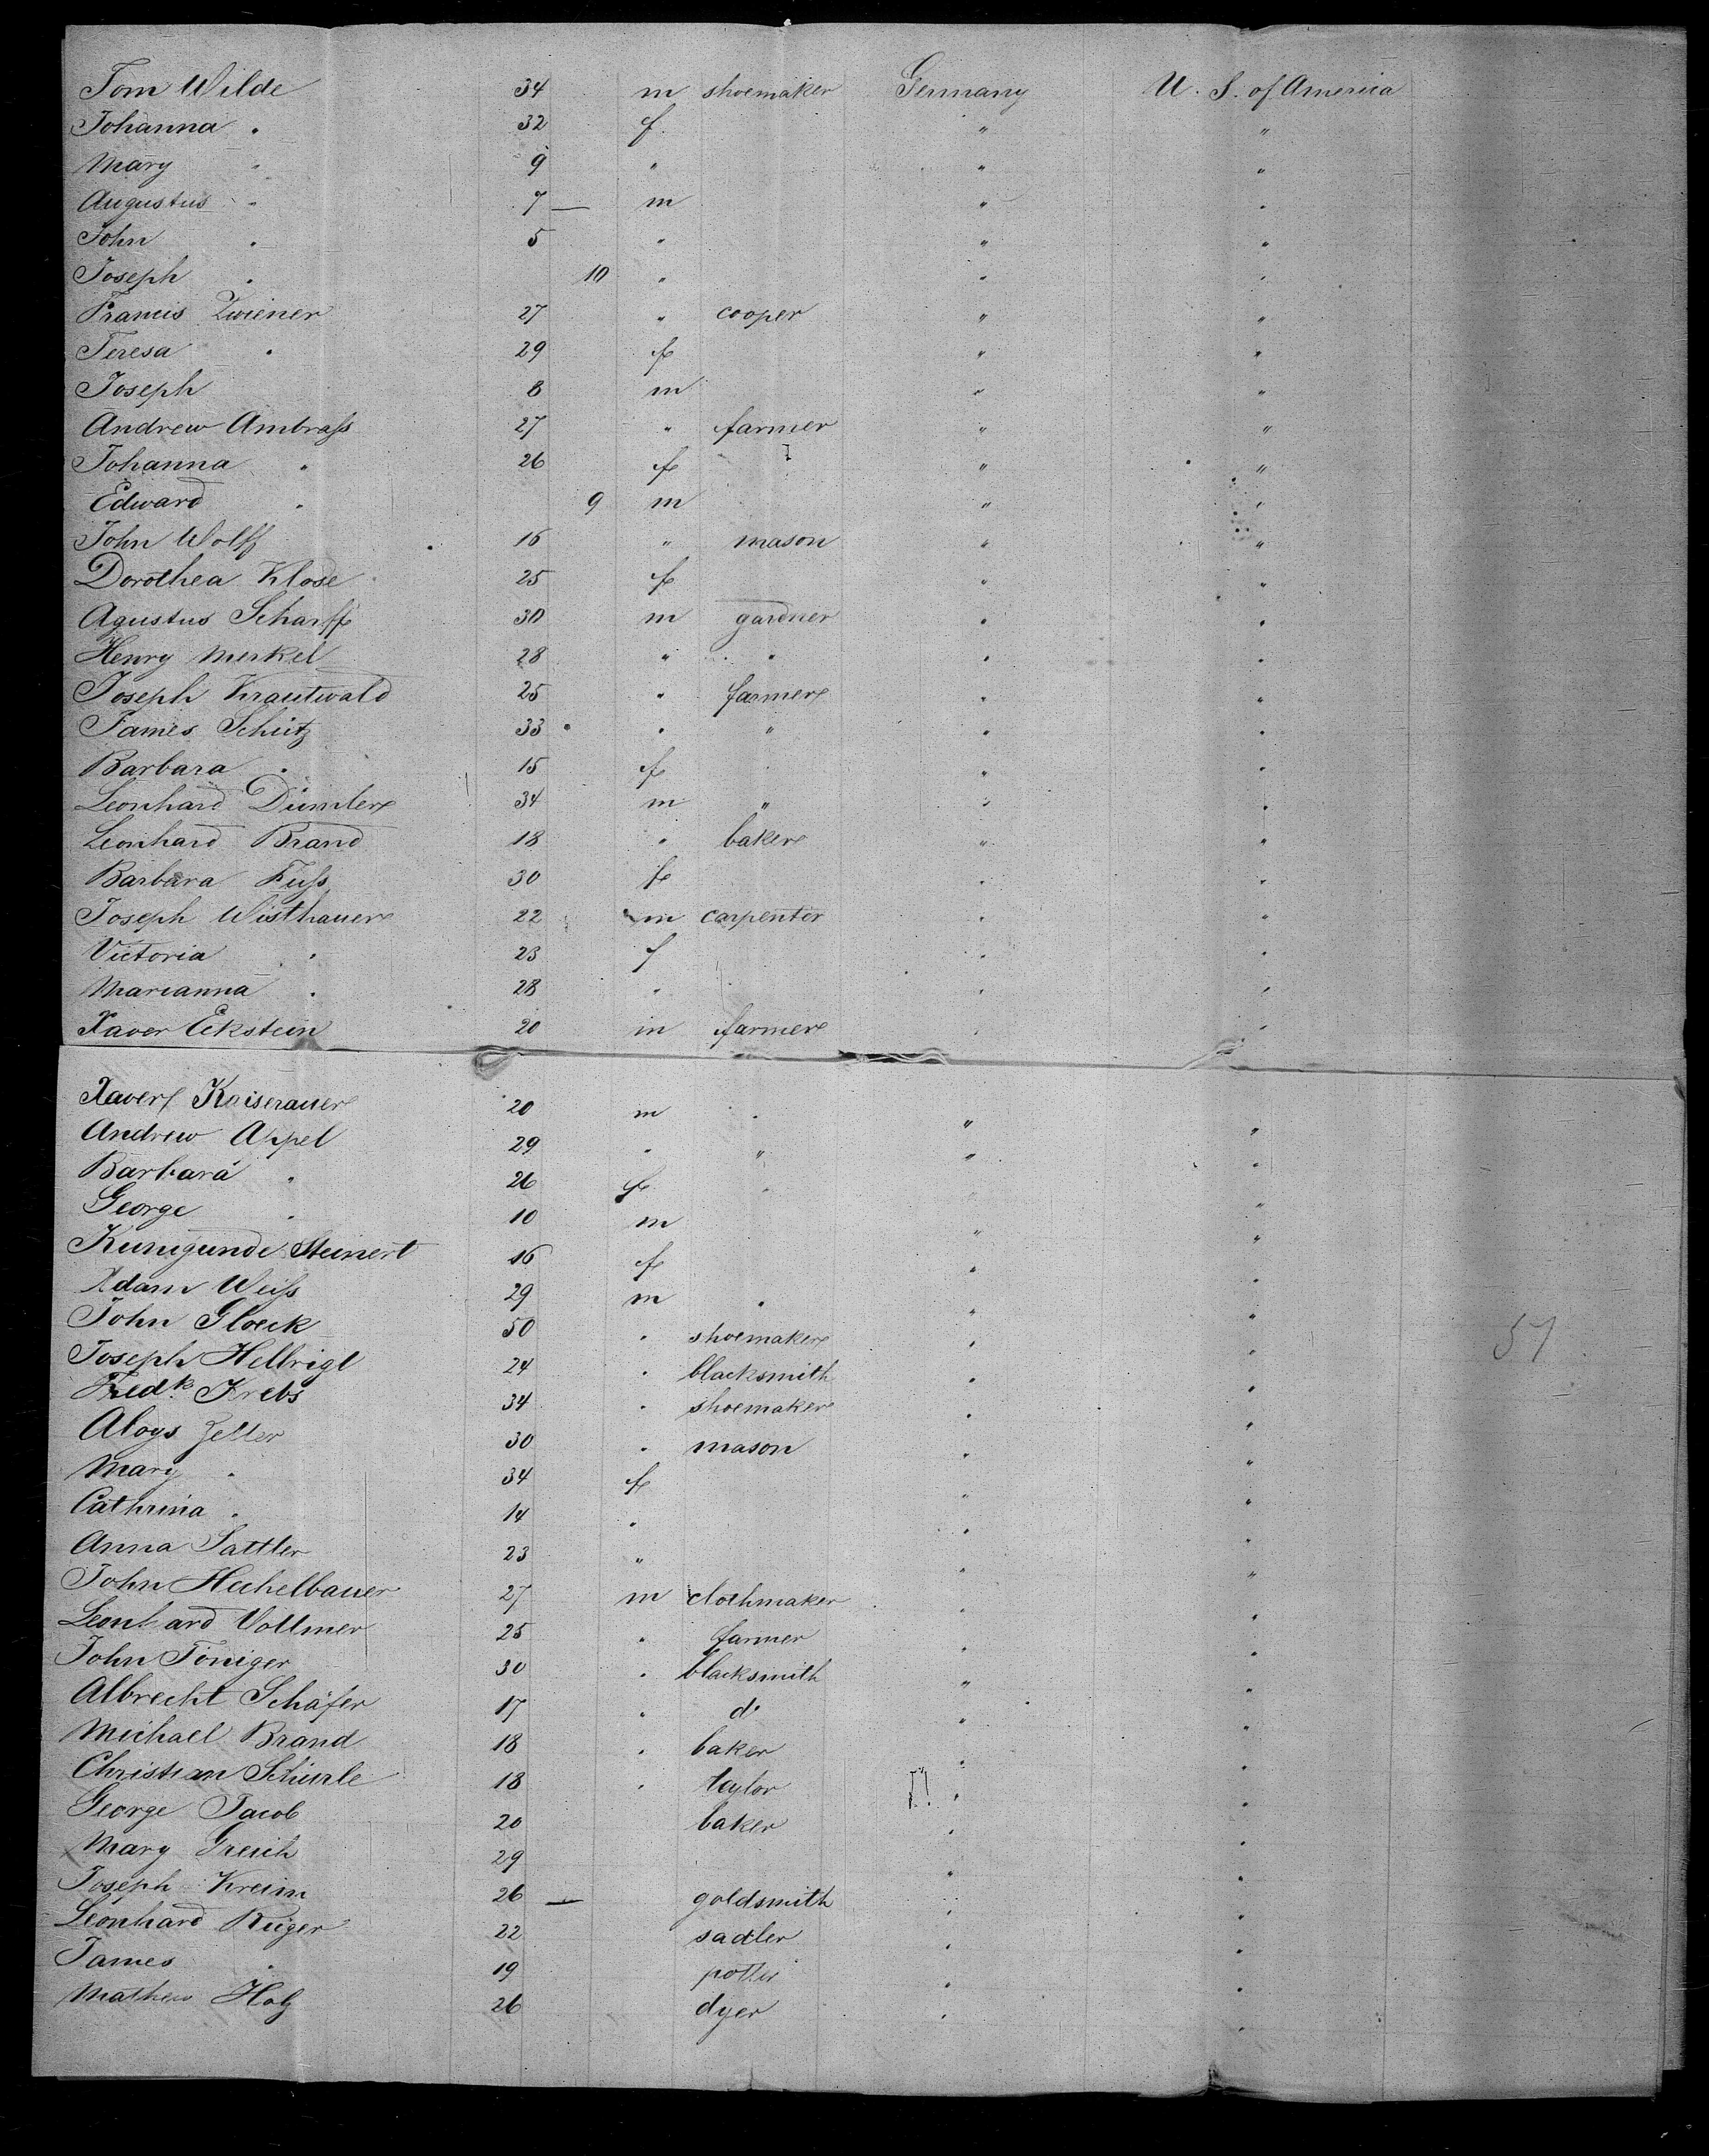 Tom Wilde 34 m shoemaker Germany U. S. of America
Johanna " 32 f. " "
Mary " 9 " " "
Augustus " 7 — m " "
John " 5 " " "
Joseph " 10 " " "
Francis Zwiener 27 " cooper " "
Teresa " 29 f " "
Joseph 8 m " "
Andrew Ambrass 27 " farmer " "
Johanna " 26 f " "
Edward " 9 m " "
John Wolff 16 " mason " "
Dorothea Klose 25 f " "
Agustus Scharff 30 m gardner " "
Henry Merkel 28 " " " "
Joseph Krautwald 25 " farmer " "
James Schütz 33 " " " "
Barbara " 15 f " "
Leonhard Dümler 34 m " " "
Leonhard Brand 18 " baker " "
Barbara Fuss 30 f " "
Joseph Wisthauer 22 m carpenter " "
Victoria " 23 f " "
Marianna " 28 " " "
Xaver Eckstein 20 m farmer " "
Xaver Kaiserauer 20 m " " "
Andrew Appel 29 " " " "
Barbara " 26 f " " "
George " 10 m " "
Kunigunde Steinert 16 f " "
Adam Weiss 29 m " " "
John Gloeck 50 " shoemaker " "
57
Joseph Hellrigl 24 " blacksmith " "
Fredk Krebs 34 " shoemaker " "
Aloys Zeller 30 " mason " "
Mary " 34 f " "
Cathrina " 14 " " "
Anna Sattler 23 " " "
John Hechelbauer 27 m clothmaker " "
Leonhard Vollmer 25 " farmer " "
John Töniger 30 " blacksmith " "
Albrecht Schäfer 17 " do " "
Michael Brand 18 " baker " "
Christian Schürle 18 " taylor " "
George Jacob 20 baker " "
Mary Greich 29 " "
Joseph Kreim 26 — goldsmith " "
Leonhard Rüger 22 sadler " "
James " 19 potter " "
Mathew Holz 26 dyer " "